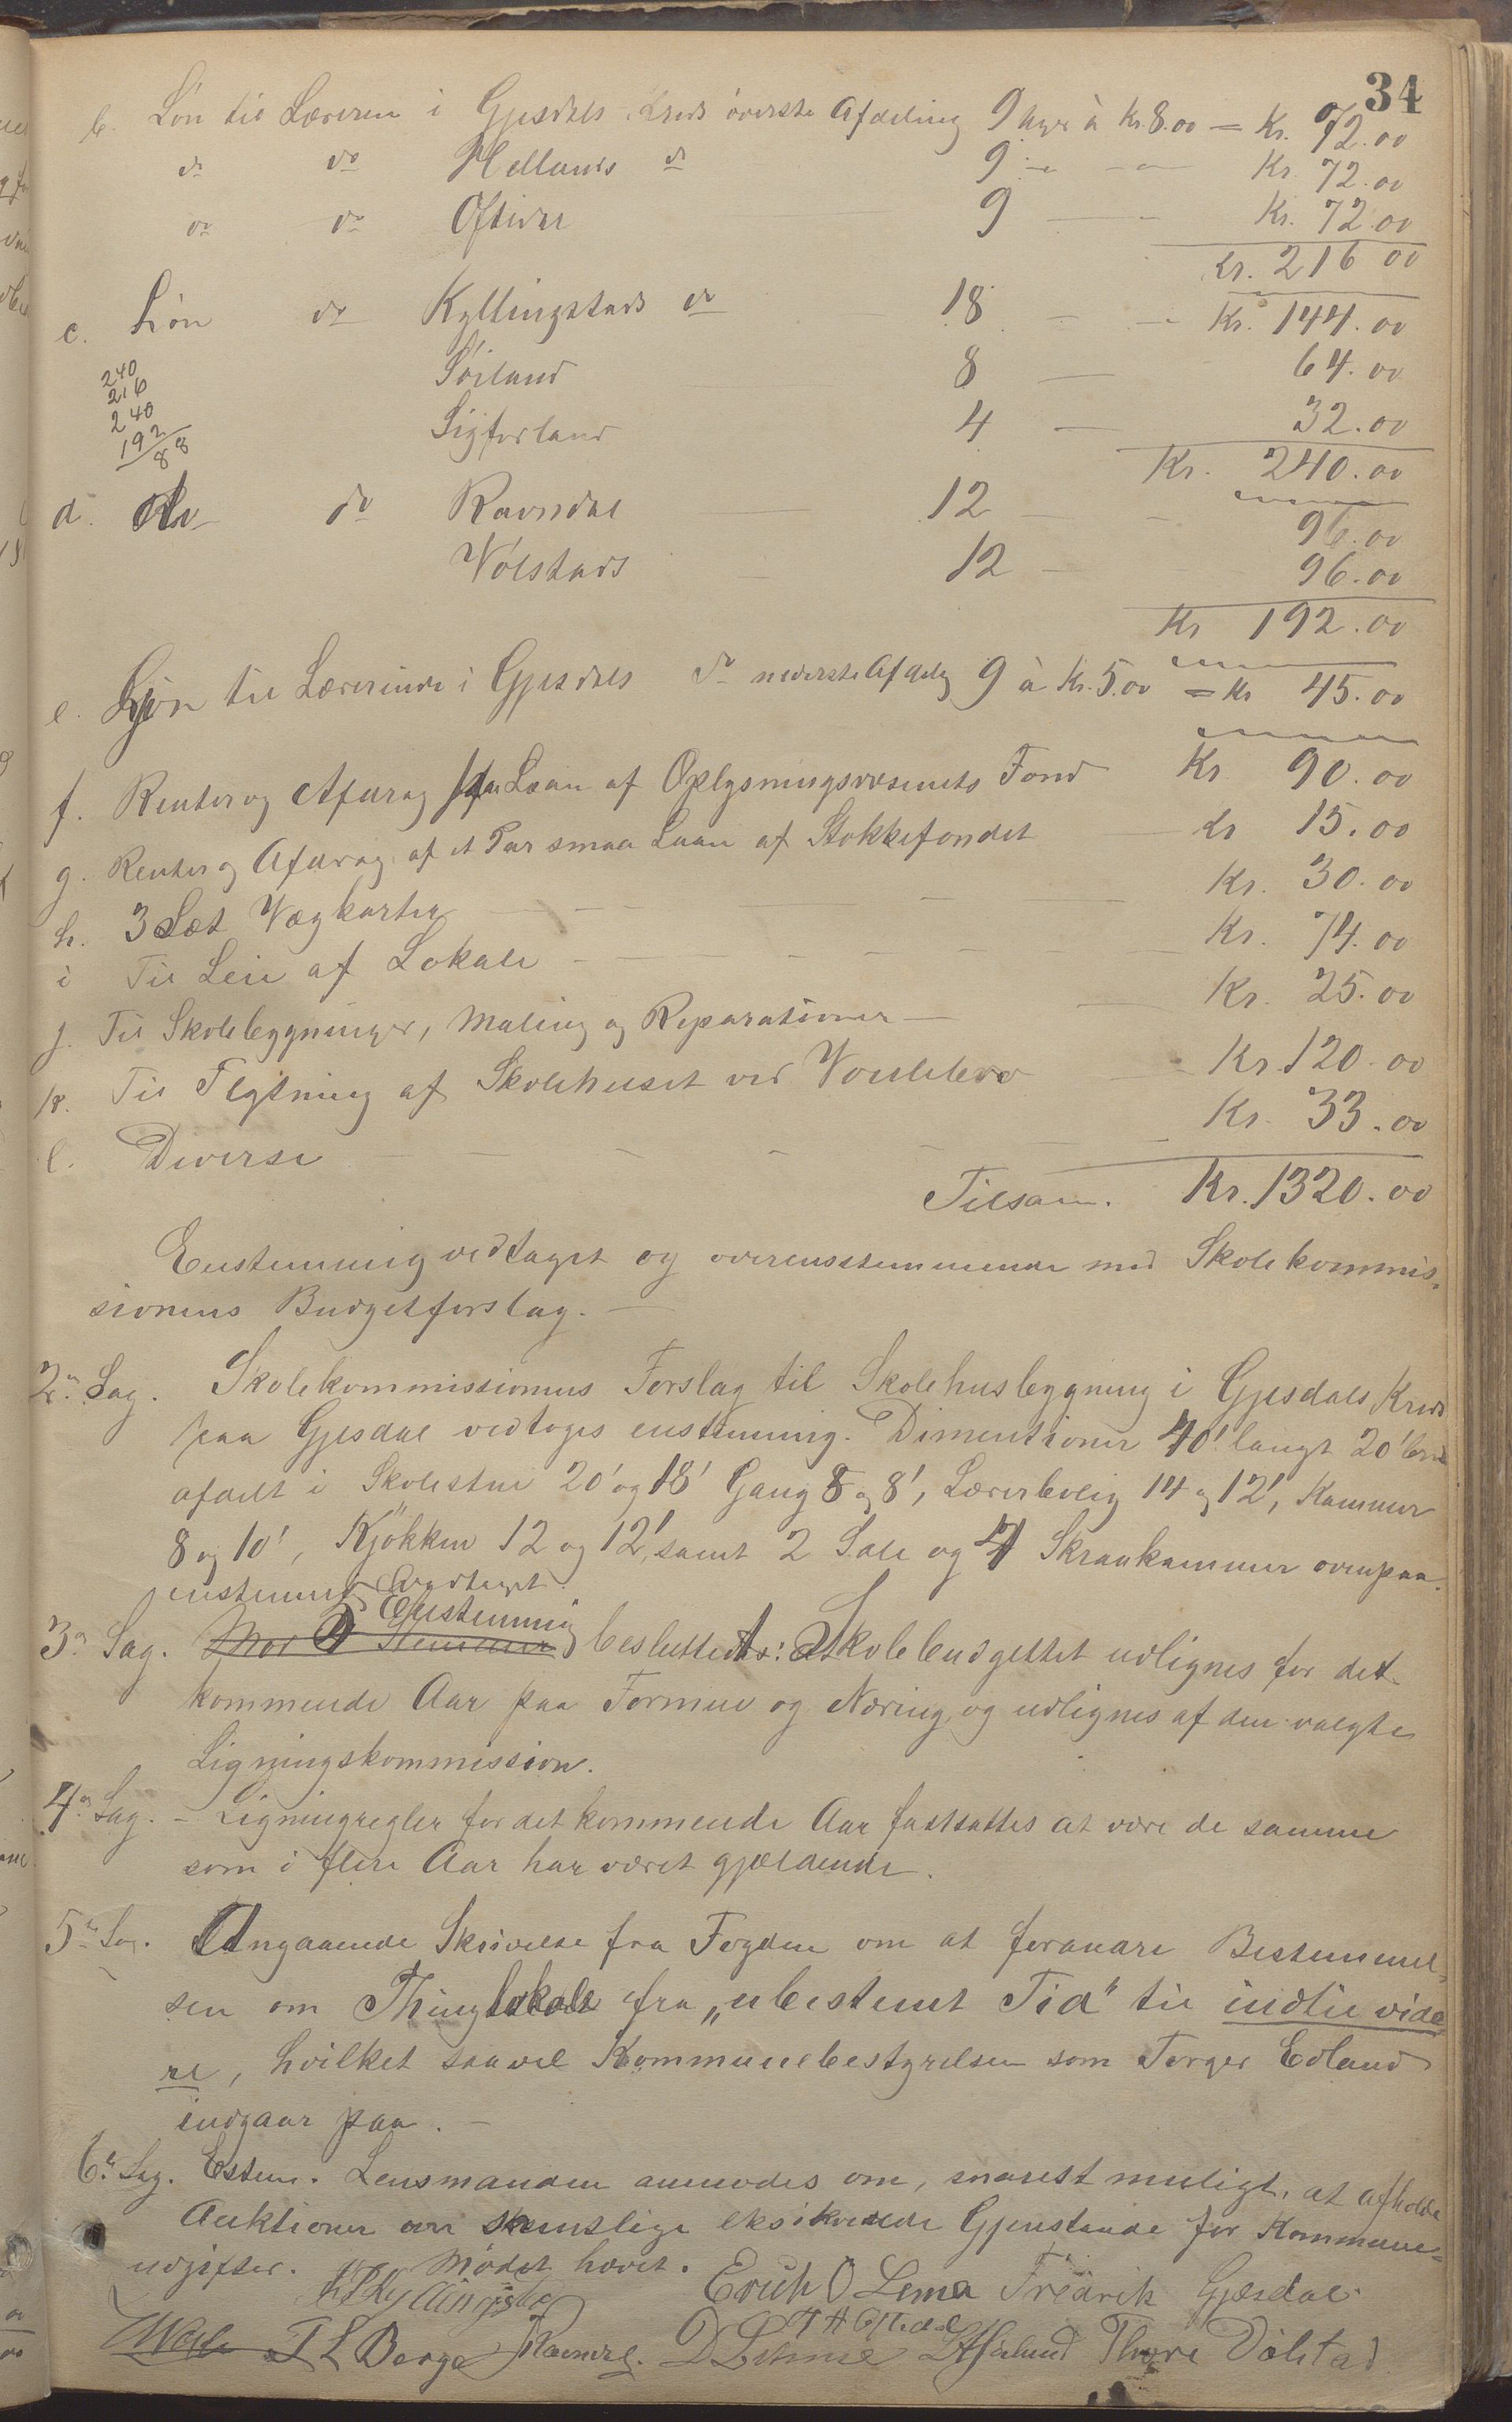 34
b. Løn til Læreren i Gjesdals Kreds øverste Afdeling 9 Uger à Kr. 8.00 = Kr. 72.00
do do Hellands do 9 - - Kr. 72.00
do do Oftedal 9 - - Kr. 72.00
Kr. 216 00
c. Løn do Kyllingstads do 18 - - Kr. 144.00
240
216
240
192
88
Søiland 8 - 64.00
Sigforland 4 - 32.00
Kr. 240.00
d. do Ravndal 12 - - 96.00
Vølstads 12 - 96.00
Kr 192.00
e. Løn til Lærerinde i Gjesdals do nederste Afdelg 9 à Kr. 5.00 = Kr 45.00
f. Renter og Afdrag paa Laan af Oplysningsvæsenets Fond Kr 90.00
g. Renter og Afdrag af et Par smaa Laan af Stokkefondet Kr 15.00
h. 3 Sæt Vægkarter Kr. 30.00
i Til Leie af Lokale Kr. 74.00
j. Til Skolebygninger, Maling og Reparationer Kr. 25.00
k. Til Flytning af Skolehuset ved Kr. 120.00
l. Diverse Kr. 33.00
Tilsam. Kr. 1320.00
Enstemmig vedtaget og overensstemmende med Skolekommis-
sionens Budgetforslag. —
2den Sag. Skolekommissionens Forslag til Skolehusbygning i Gjesdals Kreds
paa Gjesdal vedtoges enstemmig. Dimentioner 40' langt 20' bred
afdelt i Skolestue 20' og 18' Gang 8 og 8', Lærerbolig 14 og 12', Kammer
8 og 10', Kjøkken 12 og 12', samt 2 Sale og 4 Skraakammer ovenpaa.
enstemmig vedtaget.
Enstemmig
3die Sag. Mod Stemmer besluttedes: At Skolebudgettet udlignes for det
kommende Aar paa Formue og Næring, og udlignes af den valgte
Ligningskommission.
4de Sag. - Ligningregler for det kommende Aar fastsattes at være de samme
som i flere Aar har været gjældende.
5te Sag. Angaaende Skrivelse fra Fogden om at forandre Bestemmel-
sen om Thinglokale fra „ubestemt Tid" til indtil vide-
re, hvilket saavel Kommunebestyrelsen som Torger Edland
indgaar paa. -
6te Sag. Estem. Lensmanden anmodes om, snarest muligt, at afholde
Auktioner over samtlige eksikverede Gjenstande for Kommune-
udgifter. Mødet hævet.
Kyllingstad Erich O Lima Fredrik Gjesdal
T H Oftedal
T L Berge Ravndal. D Limme Søilund Thore Vølstad